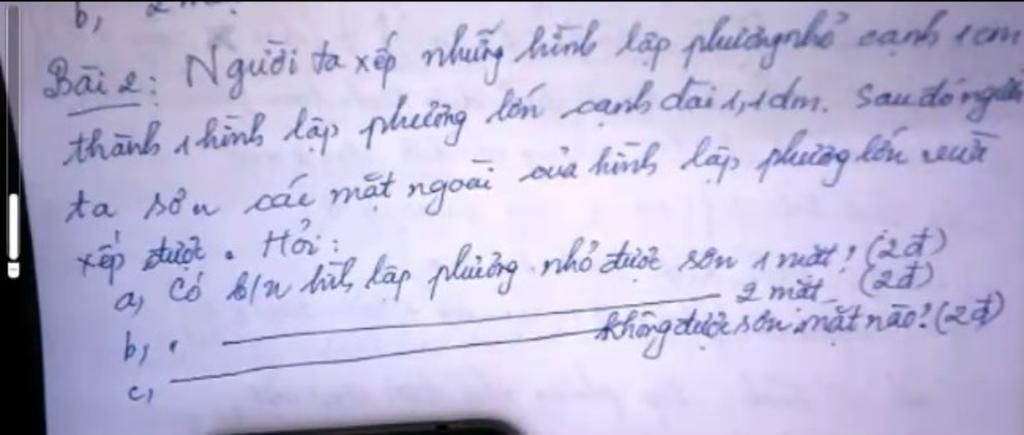 b,
Bài 2: Người ta xếp những hình lập phương nhỏ cạnh 1cm
thành 1 hình lập phương lớn cạnh dài 1,1dm. Sau đó người
ta sơn các mặt ngoài của hình lập phương lớn vừa
xếp được. Hỏi:
a, Có b/n hình lập phương nhỏ được sơn 1 mặt? (2đ)
b, 2 mặt (2đ)
c, không được sơn mặt nào? (2đ)